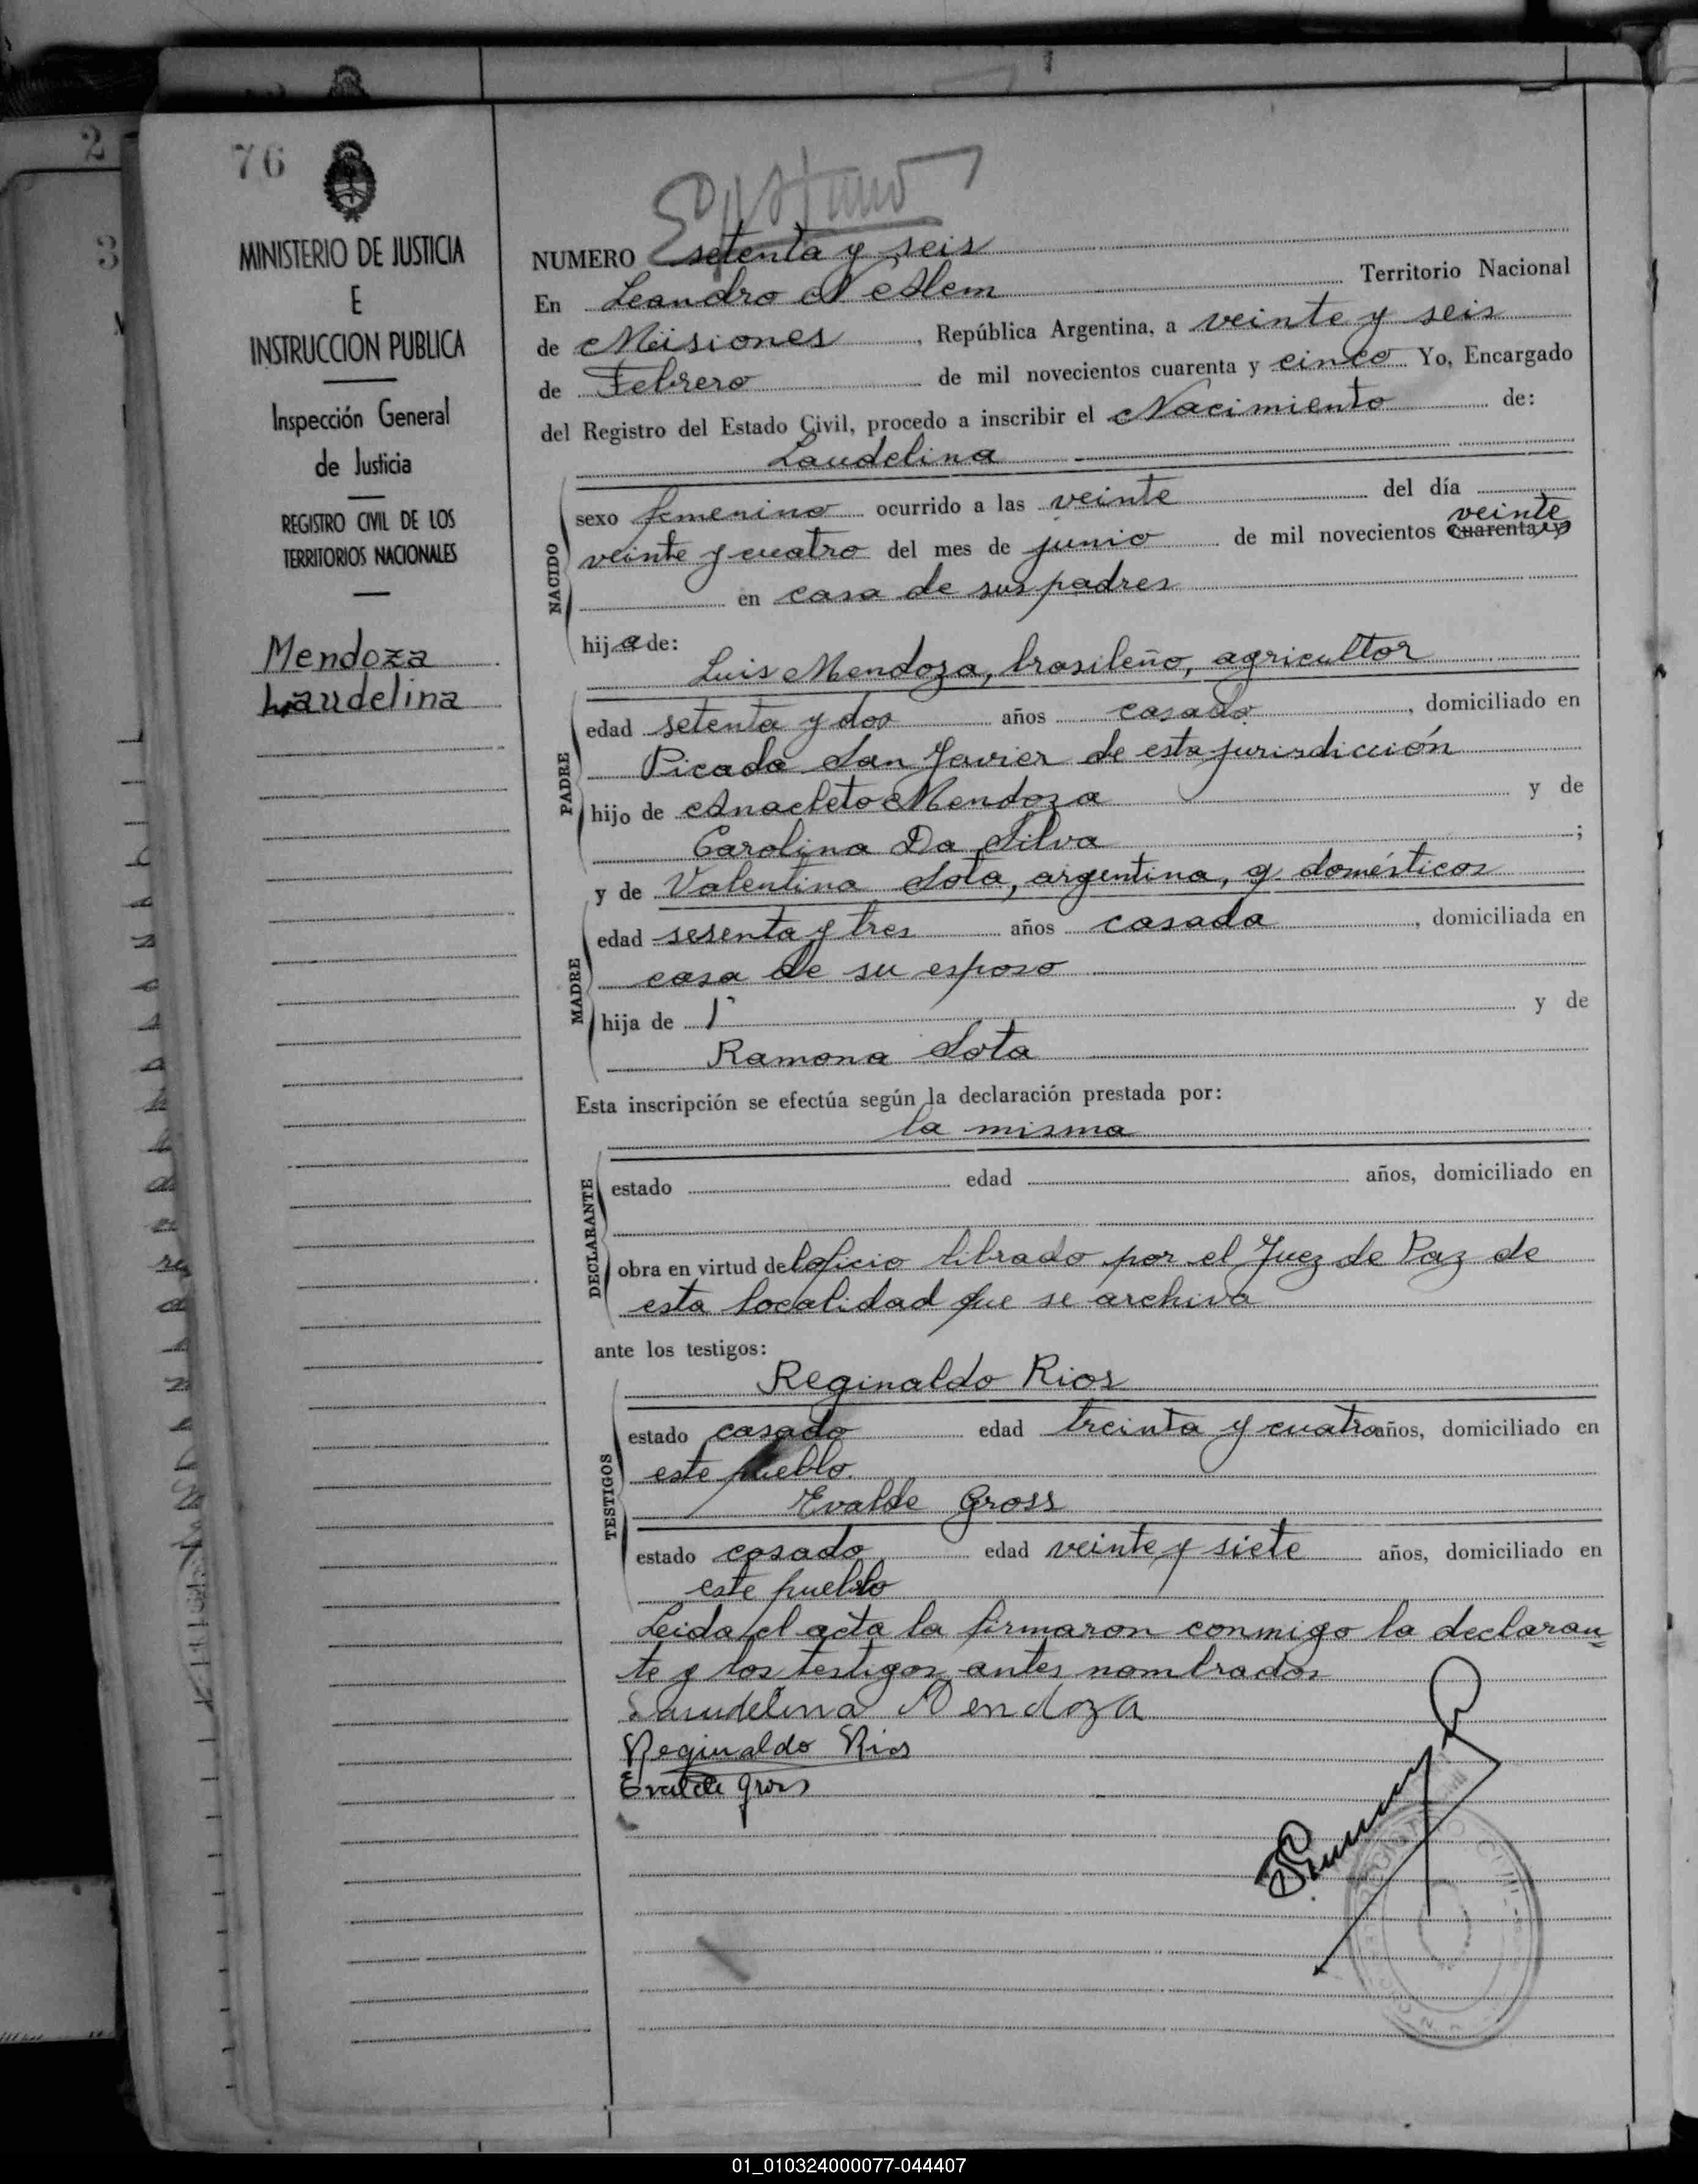 76
MINISTERIO DE JUSTICIA
E
INSTRUCCION PUBLICA
Inspección General
de Justicia
REGISTRO CIVIL DE LOS
TERRITORIOS NACIONALES
Mendoza
Laudelina
NUMERO setenta y seis
En Leandro N Alem Territorio Nacional
de Misiones, República Argentina, a veinte y seis
de Febrero de mil novecientos cuarenta y cinco Yo, Encargado
del Registro del Estado Civil, procedo a inscribir el Nacimiento de:
Laudelina
NACIDO
sexo femenino ocurrido a las veinte del día
veinte y cuatro del mes de junio de mil novecientos cuarenta y veinte
en casa de sus padres
hija de:
PADRE
Luis Mendoza, brasileño, agricultor
edad setenta y dos años casado, domiciliado en
Picada San Javier de esta jurisdicción
hijo de Anacleto Mendoza y de
Carolina Da Silva;
MADRE
y de Valentina Sota, argentina, q. domésticos
edad sesenta y tres años casada, domiciliada en
casa de su esposo
hija de y de
Ramona Sota
Esta inscripción se efectúa según la declaración prestada por:
la misma
DECLARANTE
estado edad años, domiciliado en
obra en virtud del oficio librado por el Juez de Paz de
esta localidad que se archiva
ante los testigos:
TESTIGOS
Reginaldo Rios
estado casado edad treinta y cuatro años, domiciliado en
este pueblo.
Evalde Gross
estado casado edad veinte y siete años, domiciliado en
este pueblo
Leida el acta la firmaron conmigo la declaran=
te y los testigos antes nombrados
Laudelina Mendoza
Reginaldo Rios
Evalde Gross
REGISTRO CIVIL
01_010324000077-044407